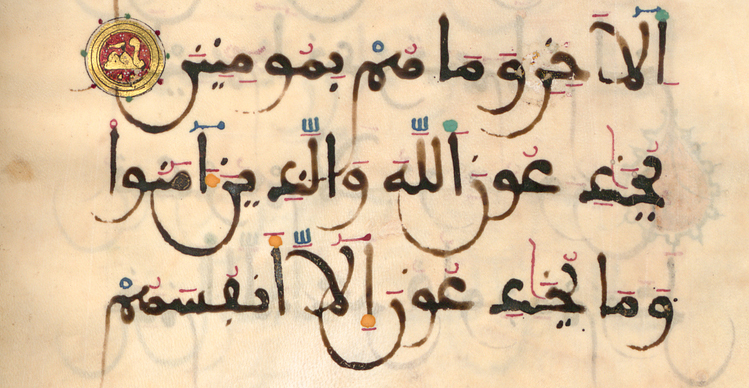 اَلَاخِرِ وَمَا هُم بِمُومِنِينَ
يُخَٰدِعُونَ اَللَّهَ وَالَّذِينَ ءَامَنُوا
وَمَا يُخَٰدِعُونَ إِلَّا أَنفُسَهُمْ